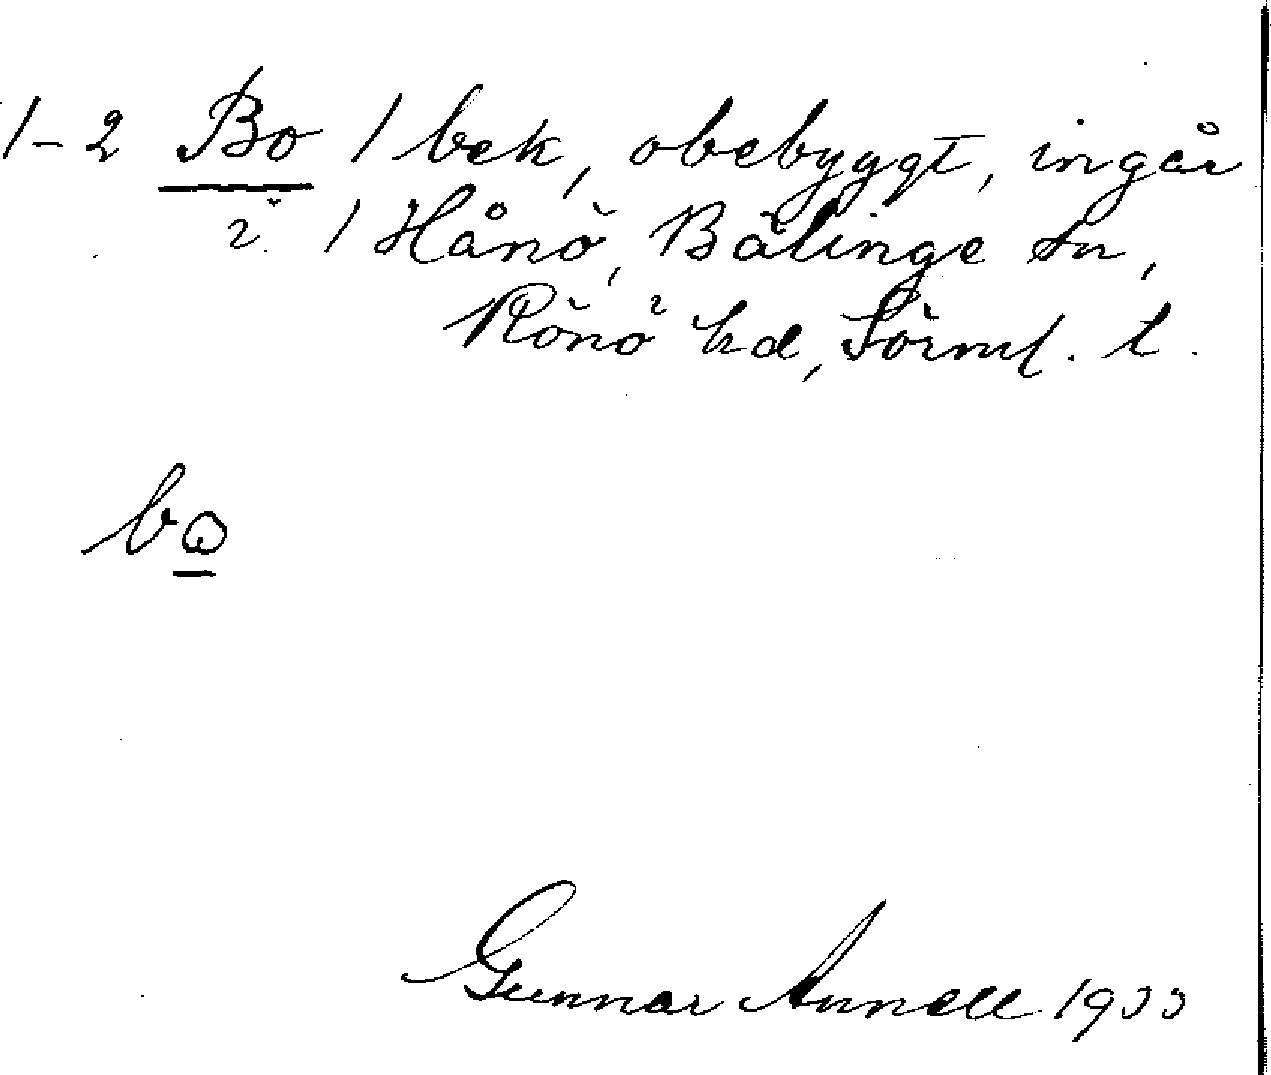 1-2 Bo 1 bek, obebyggt, ingår
i 1 Hånö, Bälinge sn,
Rönö hd, Sörml. l.
bω
Gunnar Annell 1933